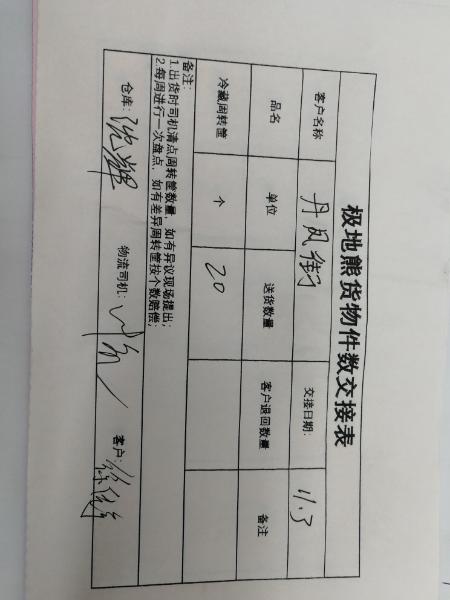 极地熊货物件数交接表
客户名称 丹凤街 交接日期: 11.3
品名 单位 送货数量 客户退回数量 备注
冷藏周转筐 个 20
备注:
1.出货时司机清点周转筐数量,如有异议现场提出;
2.每周进行一次盘点,如有差异周转筐按个数赔偿;
仓库: 物流司机: 客户: